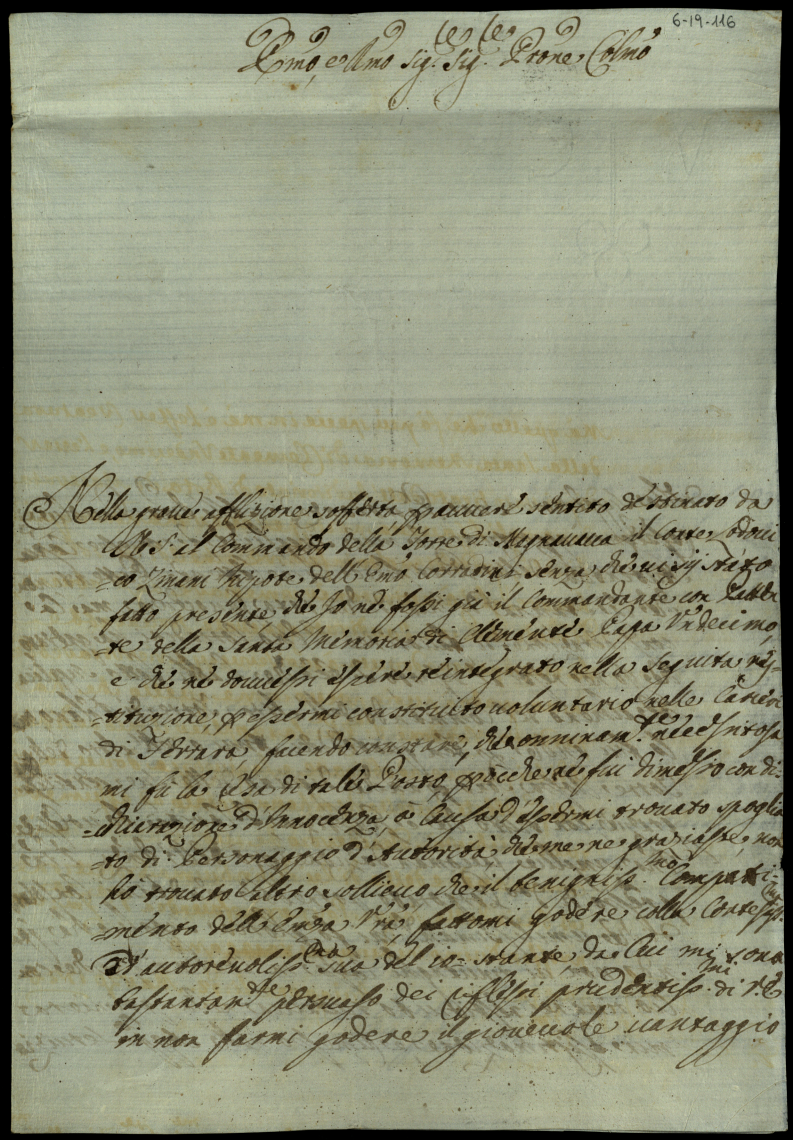 6-19-116
Emo, e Rmo Sig.re Sig.re Prone Colmo
Nella grave afflizione sofferta p avere sentito destinato da
N. S. al Commando della Torre di Magnavacca il Conte
co Zinani Nipote dell'Emo Corradini senza, che vi sij stato
fatto presente, che Io ne fossi già il Commandante con Paten
-te della Santa Memoria di Clemente Papa Undecimo,
e che ne dovessi essere reintegrato nella seguita res-
-tituzione, p essermi constituito voluntario nelle Carceri
di Ferrara, facendo constare, che omninam.te necessitosa
mi fu la di tale Posto, poiche ne fui dimesso con di-
-chiarazione d'Innocenza, à Causa d'essermi trovato spoglia
-to di Personaggio d'Autorità, che me ne graziasse, non
hò trovato altro sollievo che il benigniss.mo Compati-
-mento dell'Emza Vra, fattomi godere colla Cortesiss.ma
Et autorevoliss.ma sua del 10 stante, da Cui mi sono
bastantam.te persuaso dei riflessi prudentiss.mi di V. E.
in non farmi godere il giovevole vantaggio